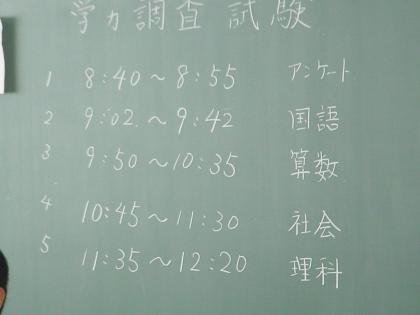 学力調査 試験
1 8:40～8:55 アンケート
2 9:02～9:42 国語
3 9:50～10:35 算数
4 10:45～11:30 社会
5 11:35～12:20 理科